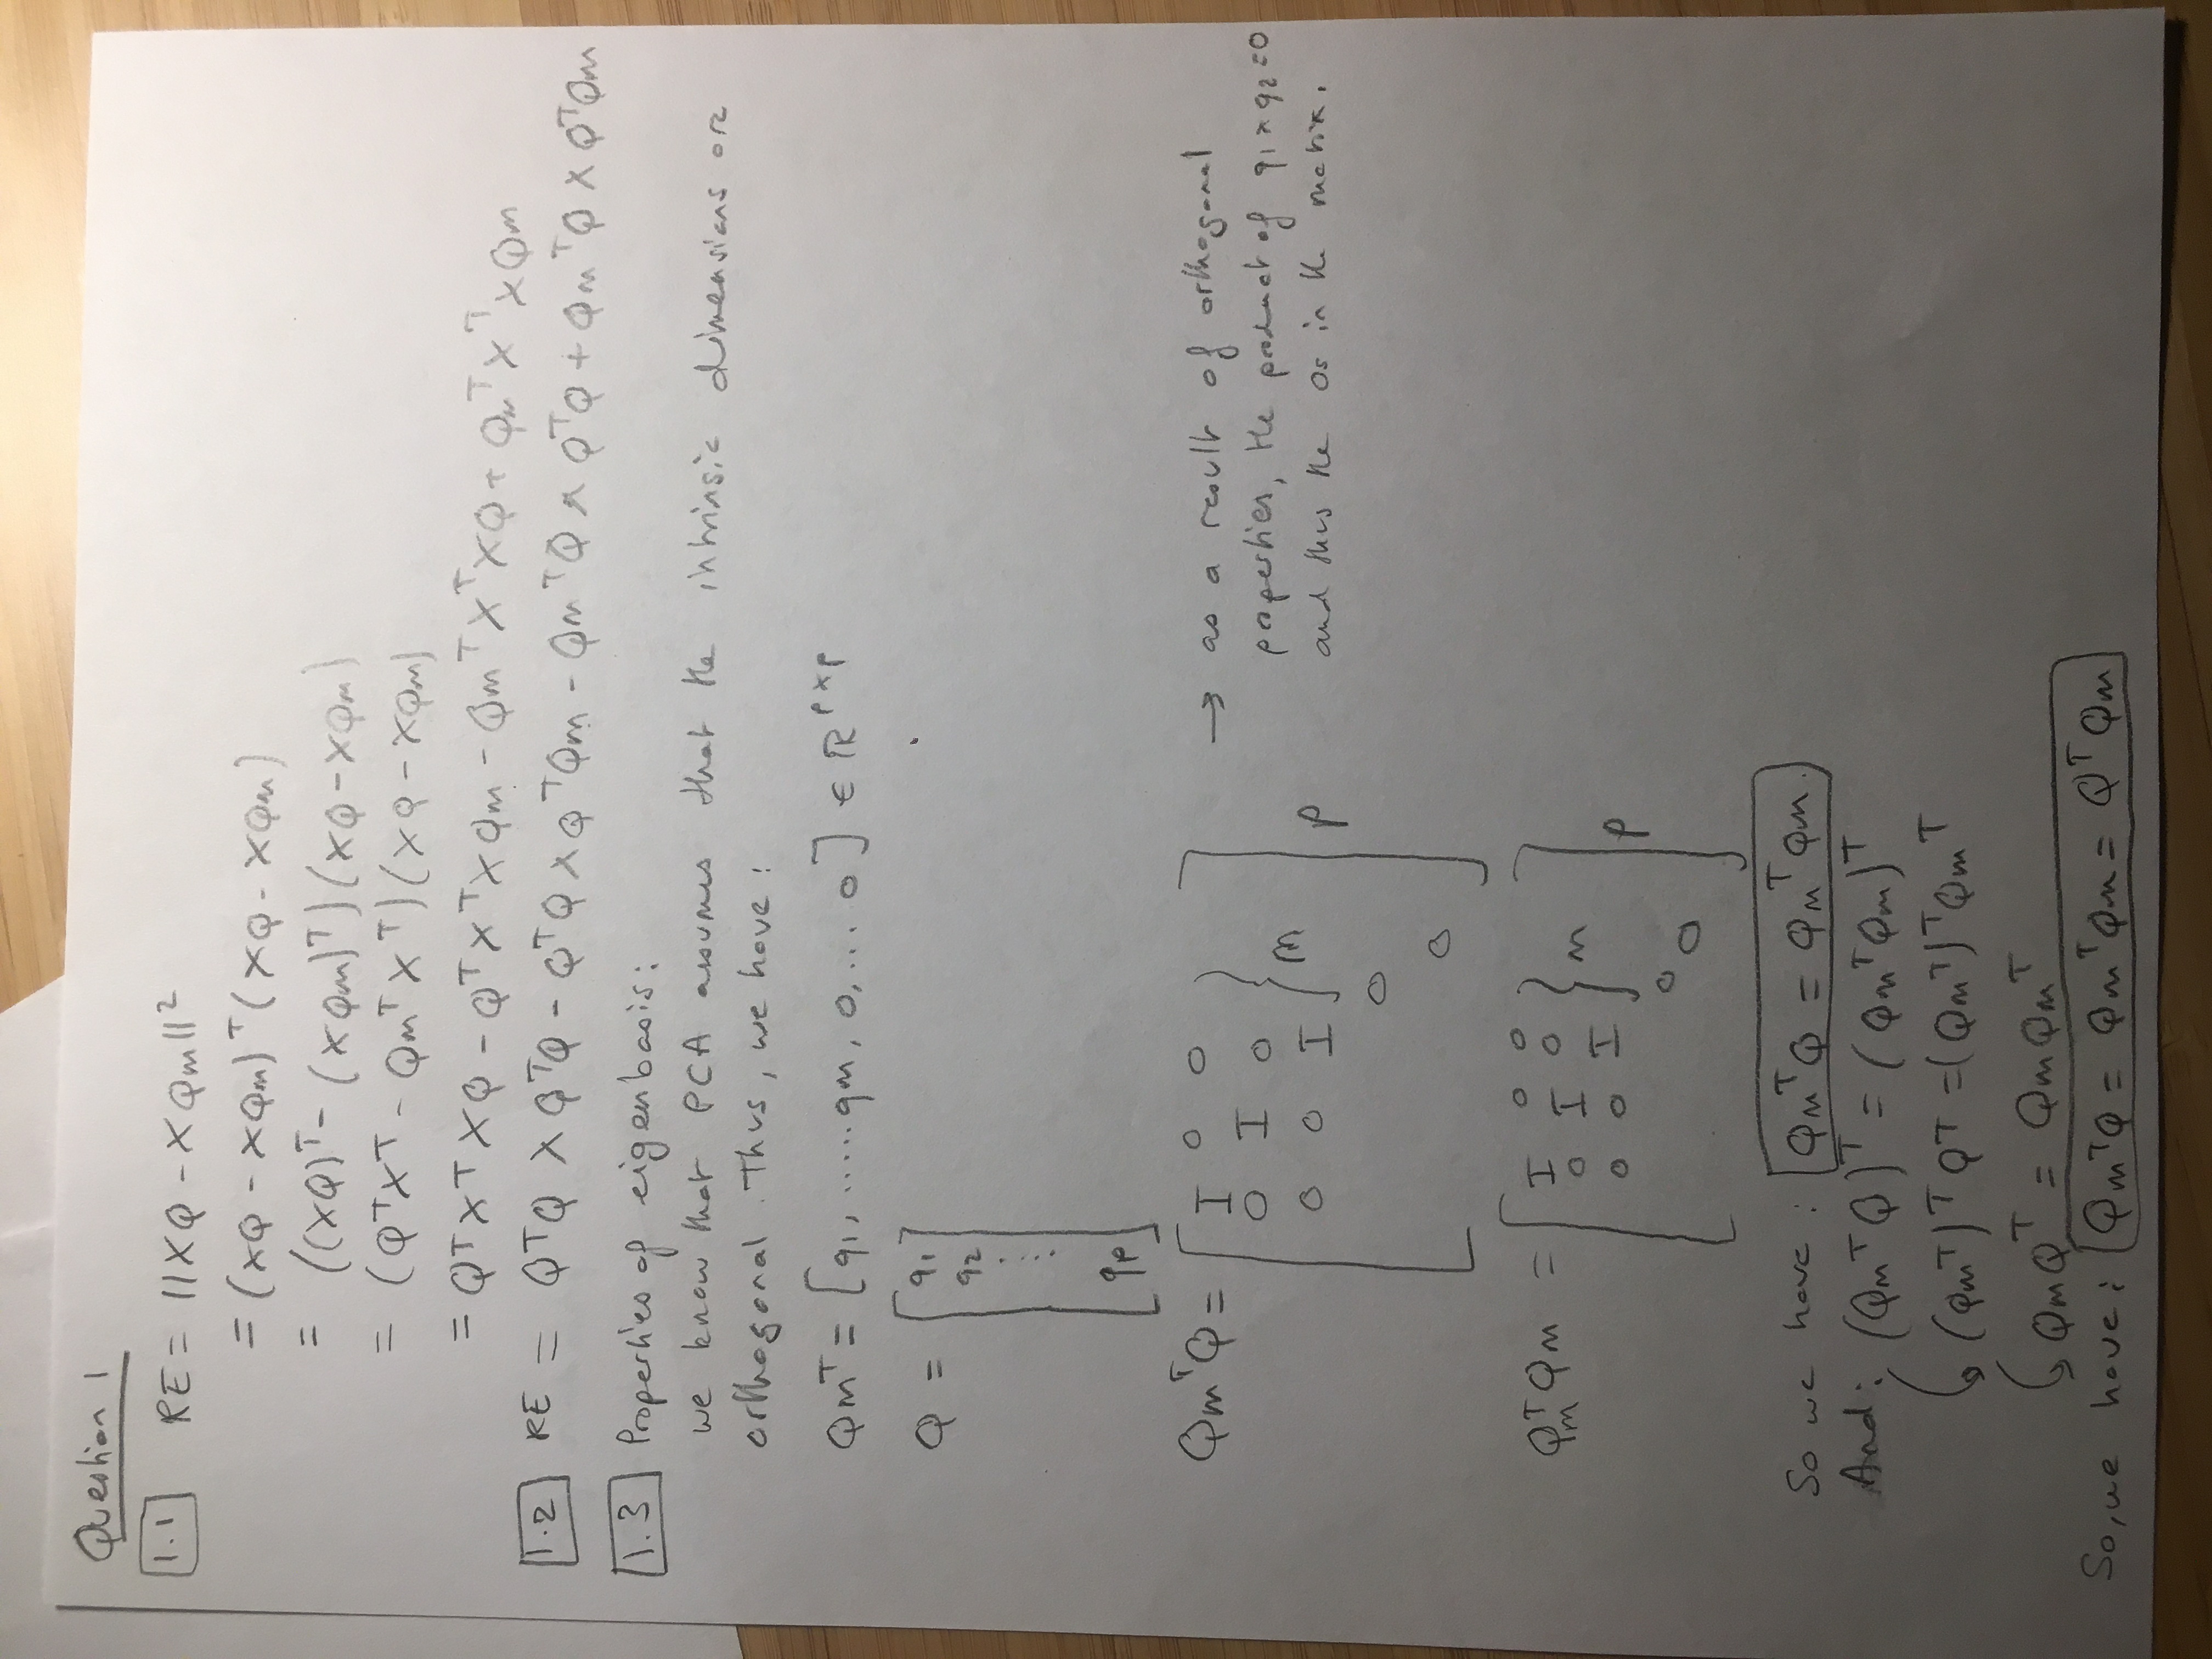 Question 1
1.1 RE = ||XQ - XQm||²
= (XQ - XQm)ᵀ(XQ - XQm)
= ((XQ)ᵀ - (XQm)ᵀ)(XQ - XQm)
= (QᵀXᵀ - QmᵀXᵀ)(XQ - XQm)
= QᵀXᵀXQ - QᵀXᵀXQm - QmᵀXᵀXQ + QmᵀXᵀXQm
1.2 RE = QᵀQ X QᵀQ - QᵀQ X QᵀQm - QmᵀQ X QᵀQ + QmᵀQ X QᵀQm
1.3 Properties of eigenbasis:
we know that PCA assumes that the intrinsic dimensions are
orthogonal. Thus, we have:
Qmᵀ = [q1, ..... qm, 0, ... 0] ∈ ℝᵖˣᵖ
Q = [q1
q2
⋮
qp]
QmᵀQ = [I 0 0
0 I 0 } m
0 0 I
0
0] p
→ as a result of orthogonal
properties, the product of q1 x q2 = 0
and thus the 0s in the matrix.
QmᵀQm = [I 0 0
0 I 0 } m
0 0 I
0
0] p
So we have: QmᵀQ = QmᵀQm.
And: (QmᵀQ)ᵀ = (QmᵀQm)ᵀ
(Qmᵀ)ᵀQᵀ = (Qmᵀ)ᵀQmᵀ
QmQᵀ = QmQmᵀ
So, we have: QmᵀQ = QmᵀQm = QᵀQm